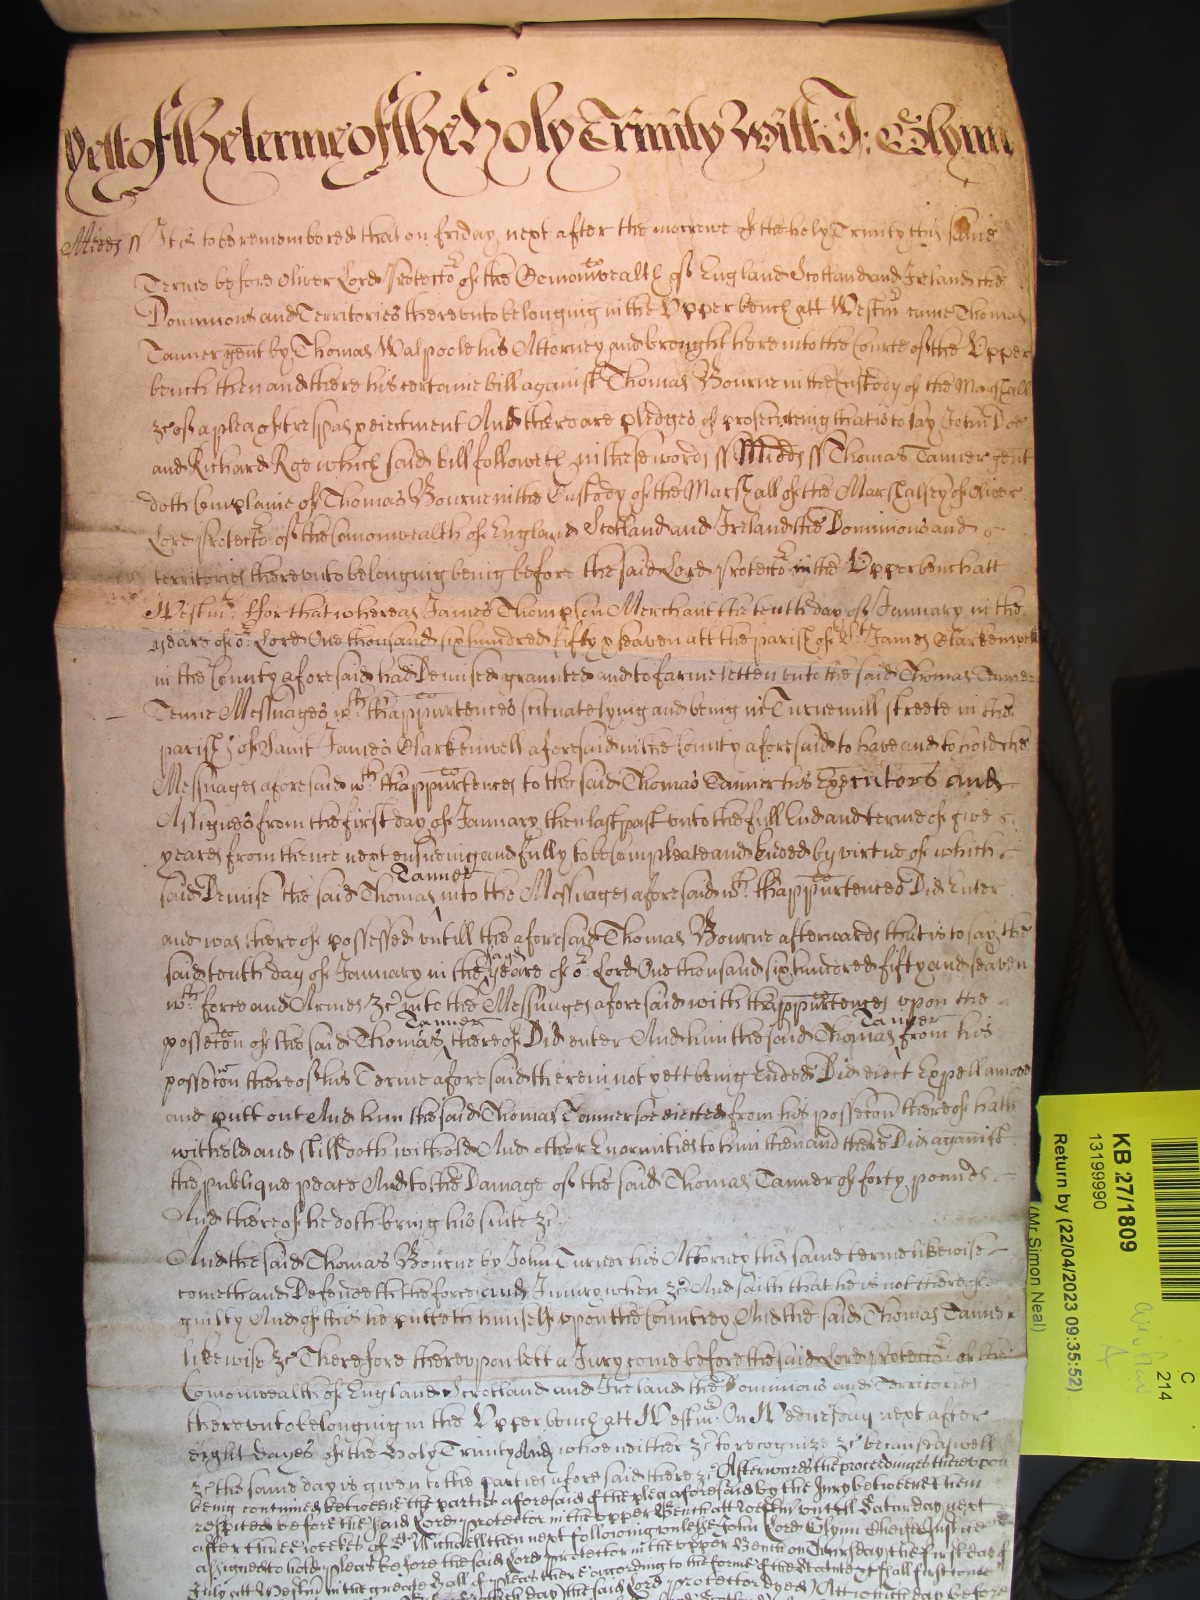 Yett of the terme of the Holy Trinity Witt: J: Glynn
Midds ss It is to be remembred that on friday next after the morrowe of the holy Trinity this same
Terme before Oliver Lord Protector of the Comonwealth of England Scotland and Ireland the
Dominions and Territories thereunto belonging in the Upper bench att Westmr came Thomas
Tanner gent by Thomas Walpoole his Attorney and brought here into the Courte of the Upper
bench then and there his certaine bill against Thomas Bourne in the Custody of the Marshall
&c of a plea of trespas & eiectment And there are pledges of prosecuteing that is to say John Doe
and Richard Roe which said bill followeth in these words ss Midds ss Thomas Tanner gent
doth Complaine of Thomas Bourne in the Custody of the Marshall of the Marshalsey of Oliver
Lord Protector of the Comonwealth of England Scotland and Ireland the Dominions and
territories thereunto belonging being before the said Lord Protector in the Upper bench att
Westmr ffor that whereas James Thompson Merchant the tenth day of January in the
yeare of or Lord One thousand six hundred fifty & seaven att the parish of St James Clarkenwell
in the County aforesaid had Demised graunted and to farme letten unto the said Thomas Tanner
Tenne Messuages wth thappurtences scituate lying and being in Turnemill streete in the
parish of Saint James Clarkenwell aforesaid in the County aforesaid to have and to hold the
Messuages aforesaid wth thappurtences to the said Thomas Tanner his Executors and
Assignes from the first day of January then last past unto the full End and terme of five
yeares from thence next ensueing and fully to be Compleate and Ended by virtue of which
said Demise the said Thomas Tanner into the Messuages aforesaid wth thappurtences Did Enter
and was thereof possessed untill the aforesaid Thomas Bourne afterwards that is to say the
said tenth day of January in the said yeare of or Lord One thousand six hundred fifty and seaven
wth force and Armes &c into the Messuages aforesaid with thappurtences upon the
possecon of the said Thomas Tanner thereof Did enter And him the said Thomas Tanner from his
possecon thereof his Terme aforesaid therein not yett being Ended Did eiect Expell amove
and putt out And him the said Thomas Tanner soe eiected from his possecon thereof hath
witheld and still doth withold And other Enormities to him then and there Did against
the publique peace And to the Damage of the said Thomas Tanner of forty pounds
And thereof he doth bring his suite &c
And the said Thomas Bourne by John Turner his Attorney this same terme likewise
cometh and Defendeth the force and Iniury when &c And saith that he is not thereof
guilty And of this he putteth himself upon the Countrey And the said Thomas Tanner
likewise &c Therefore thereupon lett a Jury come before the said Lord Protector of the
Comonwealth of England Scotland and Ireland the Dominions and Territories
thereunto belonging in the Upper bench att Westmr On Wednesday next after
eight dayes of the Holy Trinity And who neither &c to recognize &c because aswell
&c the same day is given to the parties aforesaid there &c Afterwards the proceedinges thereupon
being continued betweene the parties aforesaid of the plea aforesaid by the Jury betweene them
respited before the said Lord Protector in the upper Bench att Westm untill Saturday next
after three weekes of St Michaell then next following unlesse John Lord Glynn Cheife Justice
assigned to hold pleas before the said Lord Protector in the upper Bench on Thursday the first day of
July att Westm in the greate Hall of pleas there according to the forme of the Statute shall first come
day the said Lord Protector dyed) Att which day before
C
214
KB 27/1809
13199990
Return by (22/04/2023 09:35:52)
(Mr Simon Neal)